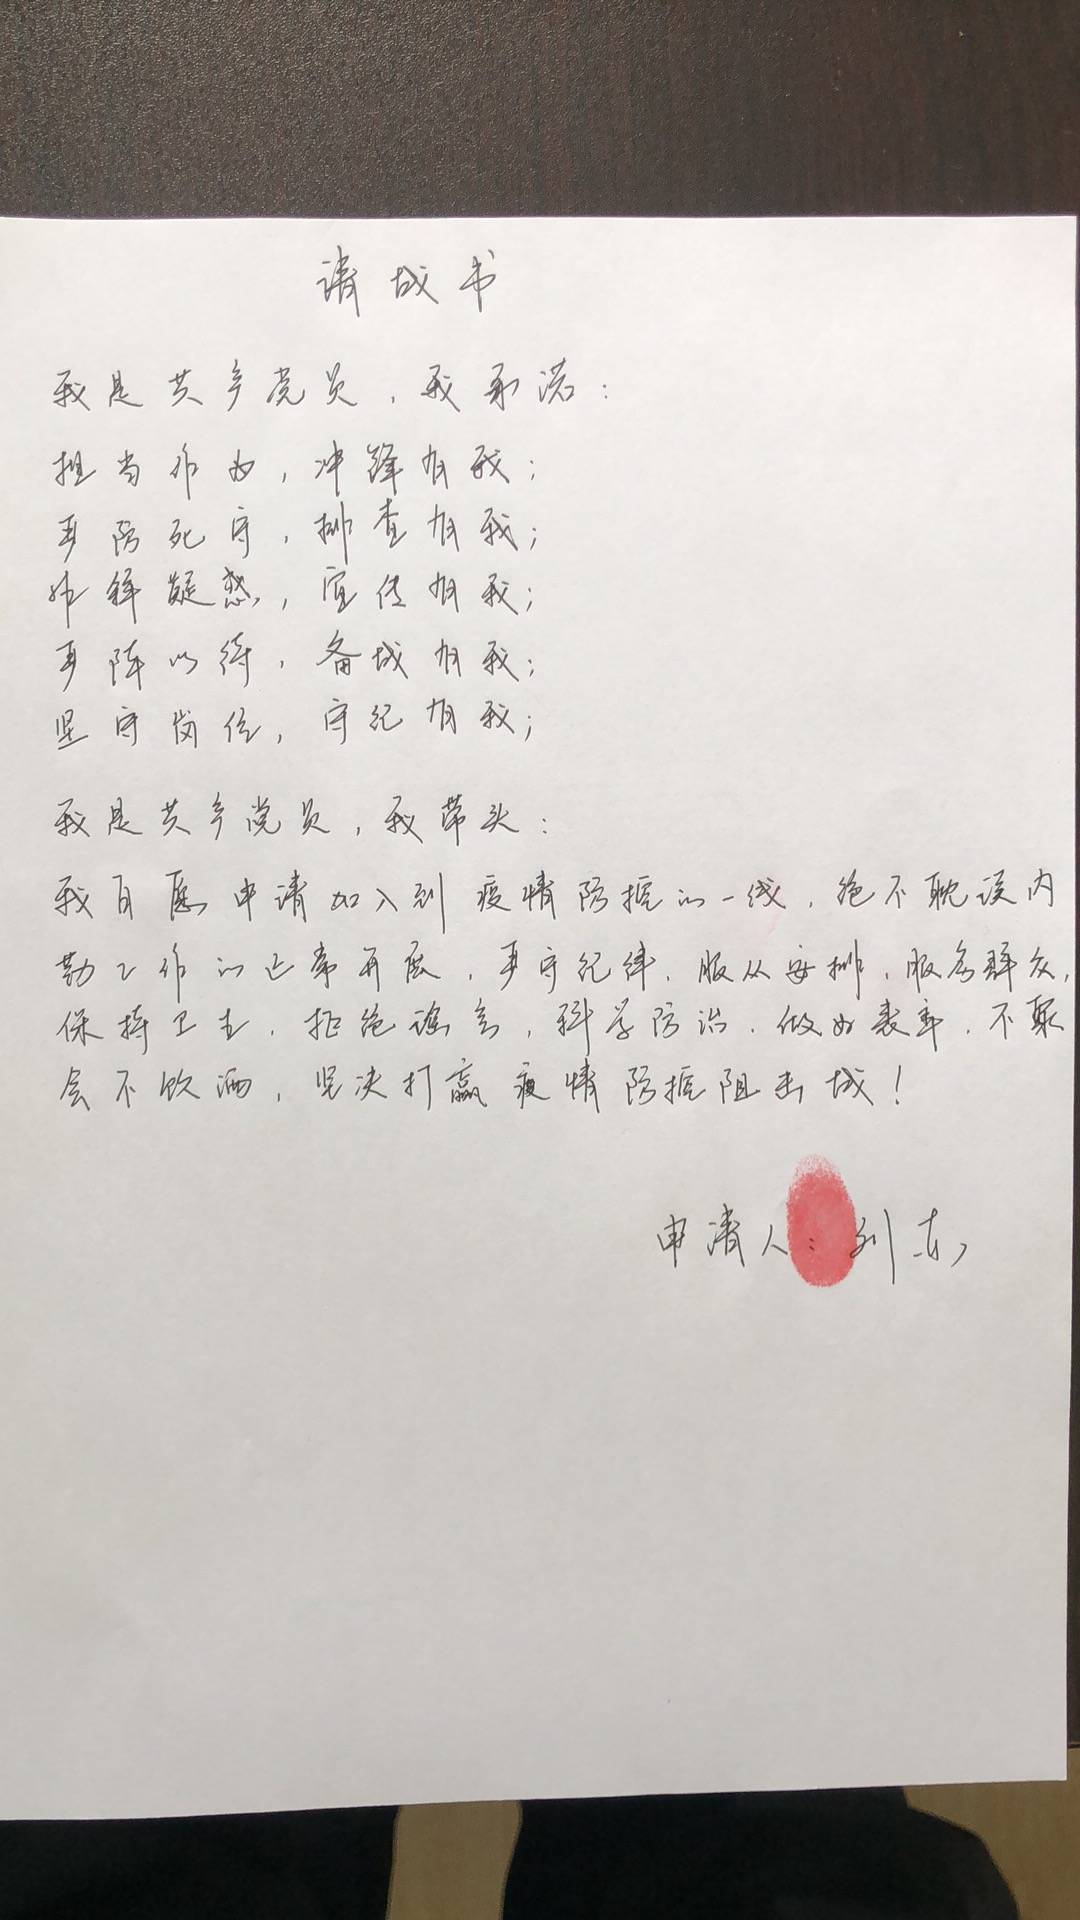 请战书
我是共产党员，我承诺：
担当作为，冲锋有我；
严防死守，排查有我；
解释疑惑，宣传有我；
严阵以待，备战有我；
坚守岗位，守纪有我；
我是共产党员，我带头：
我自愿申请加入到疫情防控的一线，绝不耽误内
勤工作的正常开展，严守纪律，服从安排，服务群众，
保持卫生，拒绝谣言，科学防治，做好表率，不聚
会不饮酒，坚决打赢疫情防控阻击战！
申请人：刘东